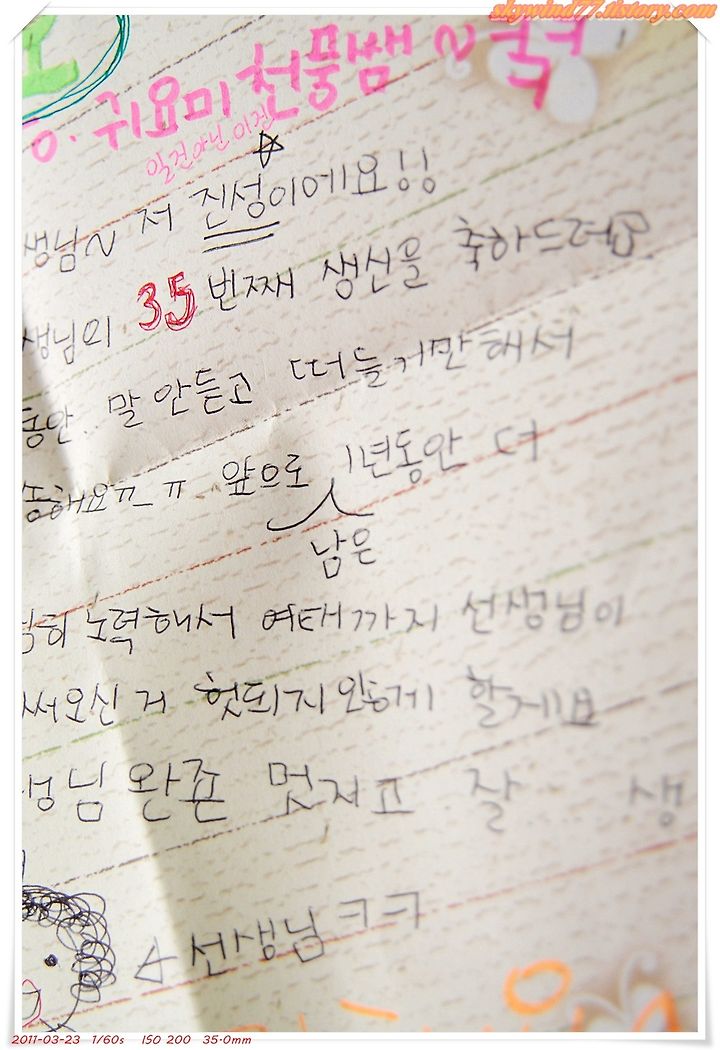 skywind77.tistory.com
귀요미 천풍쌤 ~ ㅋㅋ
일건아닌 이건
생님~ 저 진성이에요!!
생님의 35번째 생신을 축하드려요
동안 말 안듣고 떠들기만해서
송해요ㅠ_ㅠ 앞으로 1년동안 더
남은
히 노력해서 여태까지 선생님이
써오신 거 헛되지 않게 할게요
생님 완죤 멋지고 잘 생
선생님 ㅋㅋ
2011-03-23 1/60s ISO 200 35.0mm